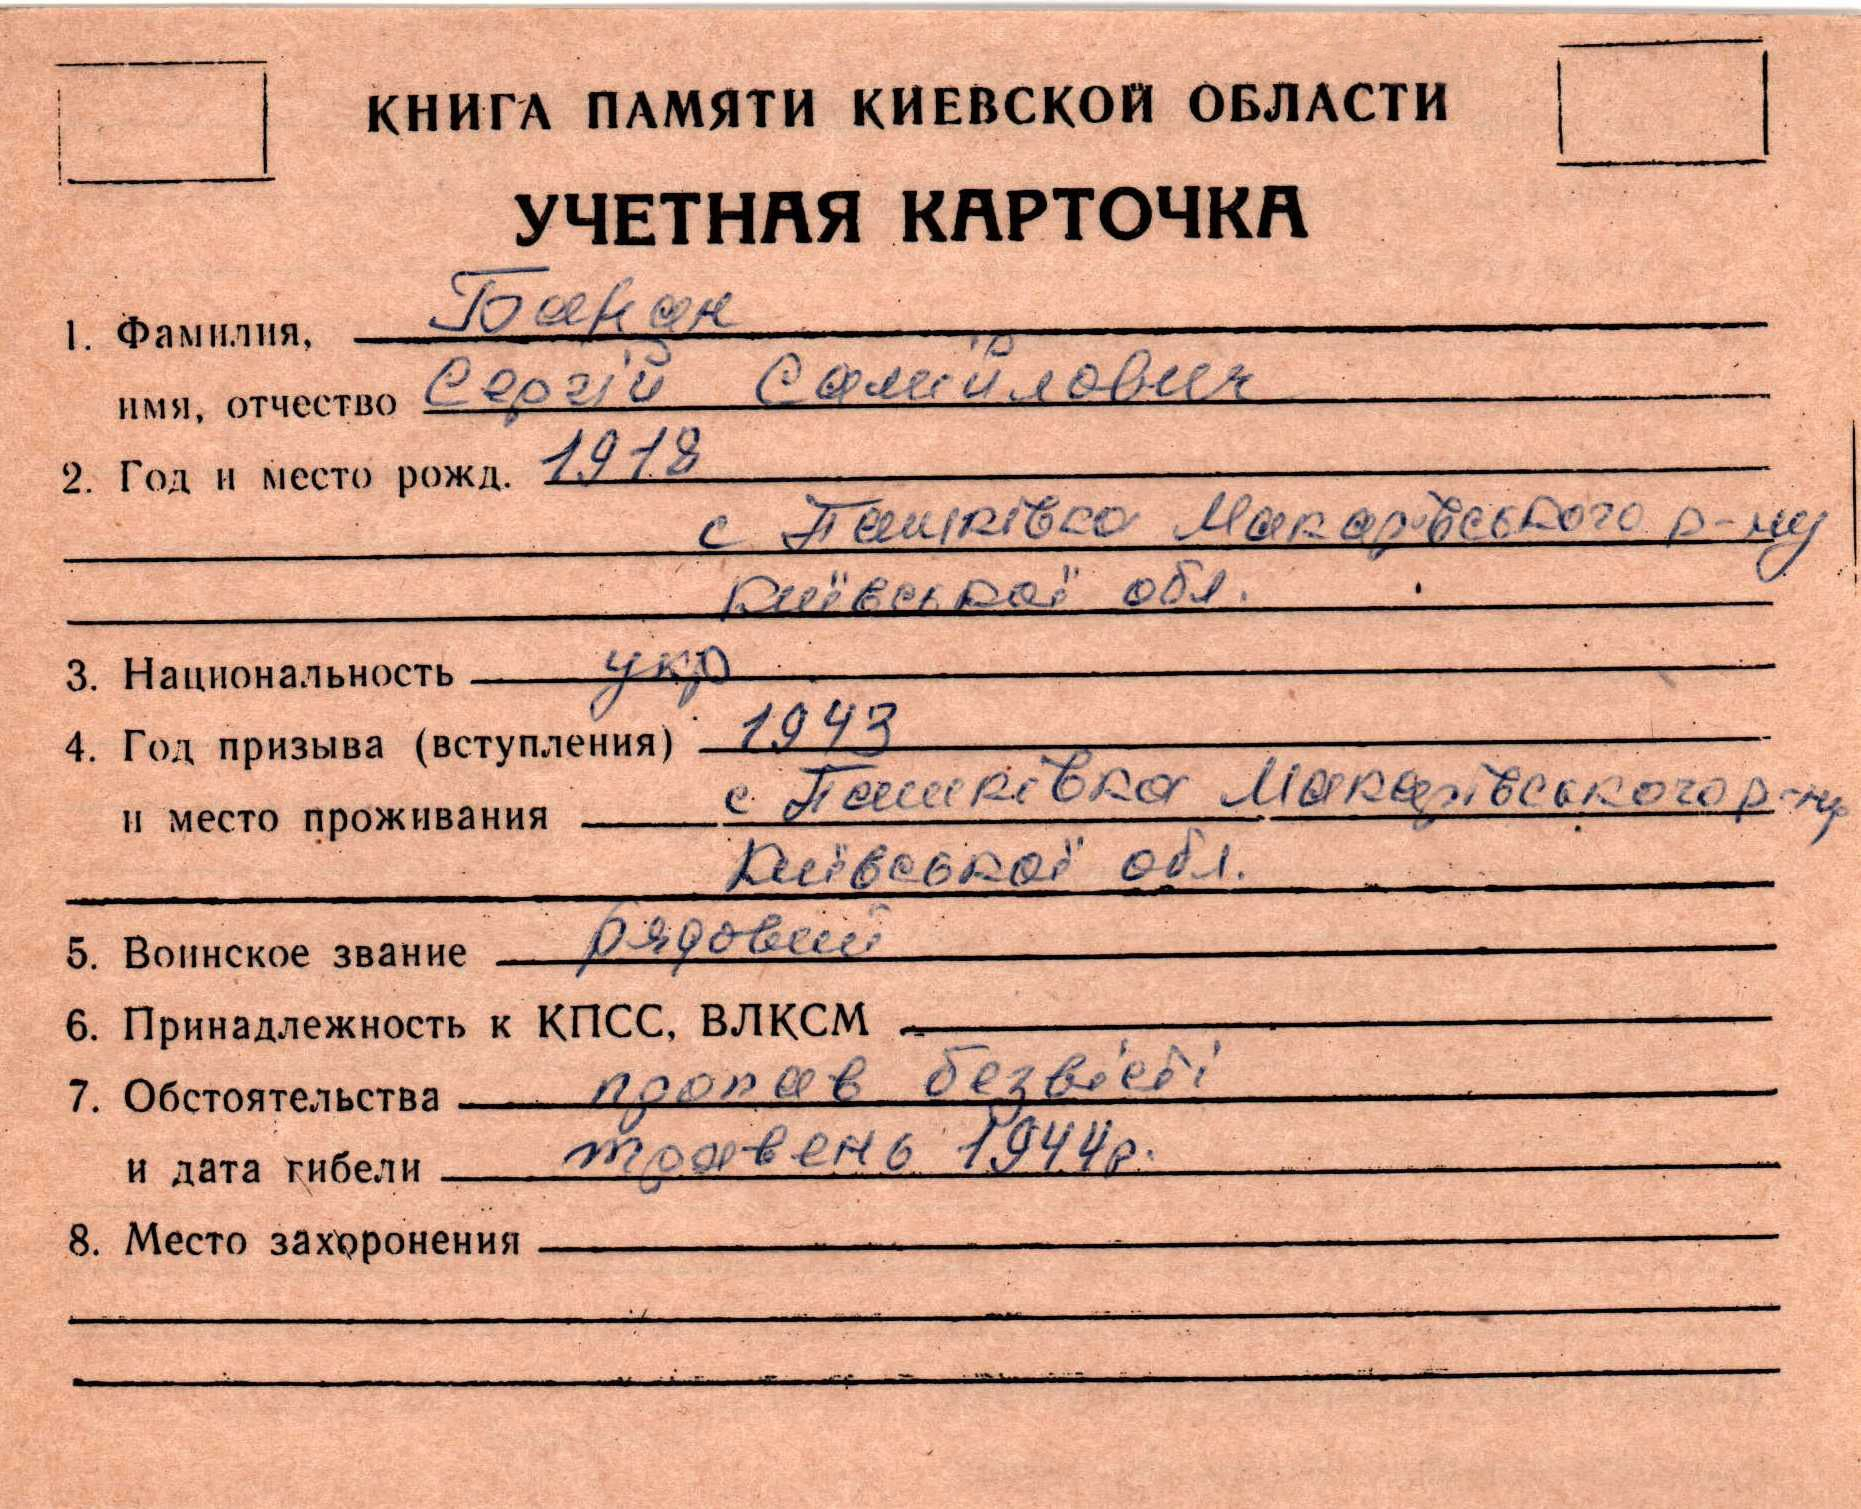 КНИГА ПАМЯТИ КИЕВСКОЙ ОБЛАСТИ
УЧЕТНАЯ КАРТОЧКА
1. Фамилия, Банан
имя, отчество Сергій Самійлович
2. Год и место рожд. 1918
с Пашківка Макарівського р-ну
Київської обл.
3. Национальность укр
4. Год призыва (вступления) 1943
и место проживания с Пашківка Макарівського р-ну
Київської обл.
5. Воинское звание рядовий
6. Принадлежность к КПСС, ВЛКСМ
7. Обстоятельства пропав безвісті
и дата гибели травень 1944р.
8. Место захоронения